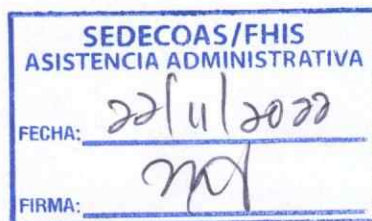 SEDECOAS/FHIS
ASISTENCIA ADMINISTRATIVA
FECHA: 22/11/2022
FIRMA: